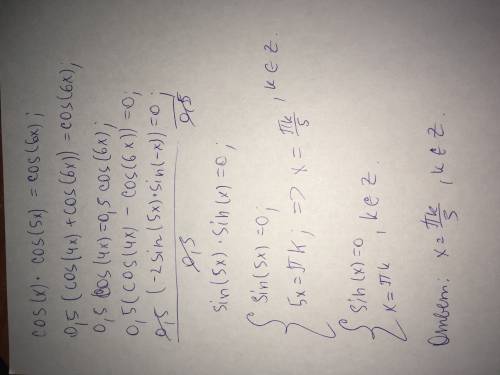 cos(x) · cos(5x) = cos(6x);
0,5 (cos(4x) + cos(6x)) = cos(6x);
0,5 cos(4x) = 0,5 cos(6x);
0,5 (cos(4x) - cos(6x)) = 0;
0,5 (-2sin(5x) · sin(-x)) = 0;
0,5 0,5
sin(5x) · sin(x) = 0;
{ sin(5x) = 0;
5x = πk; => x = πk/5, k ∈ Z.
{ sin(x) = 0
x = πk, k ∈ Z.
Ответ: x = πk/5, k ∈ Z.